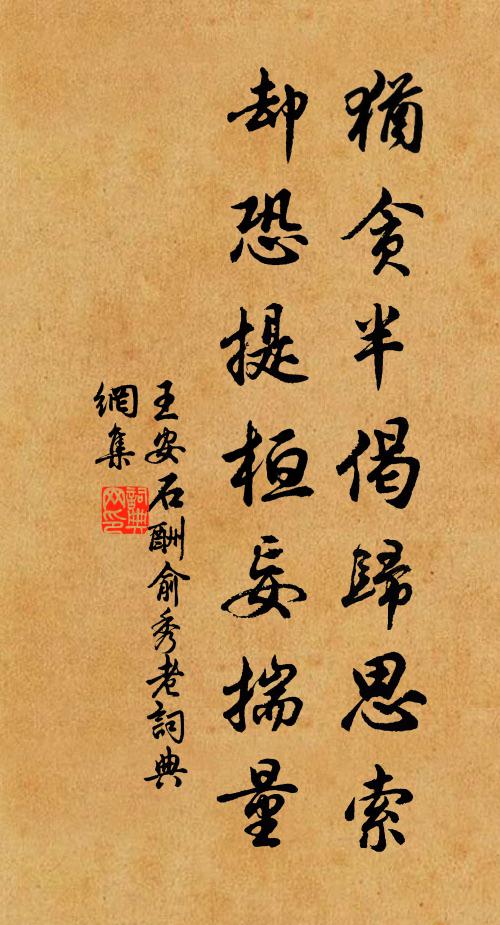 猶貪半偈歸思索
却恐提桓妄揣量
王安石酬俞秀老詞典
網集
詞典網印